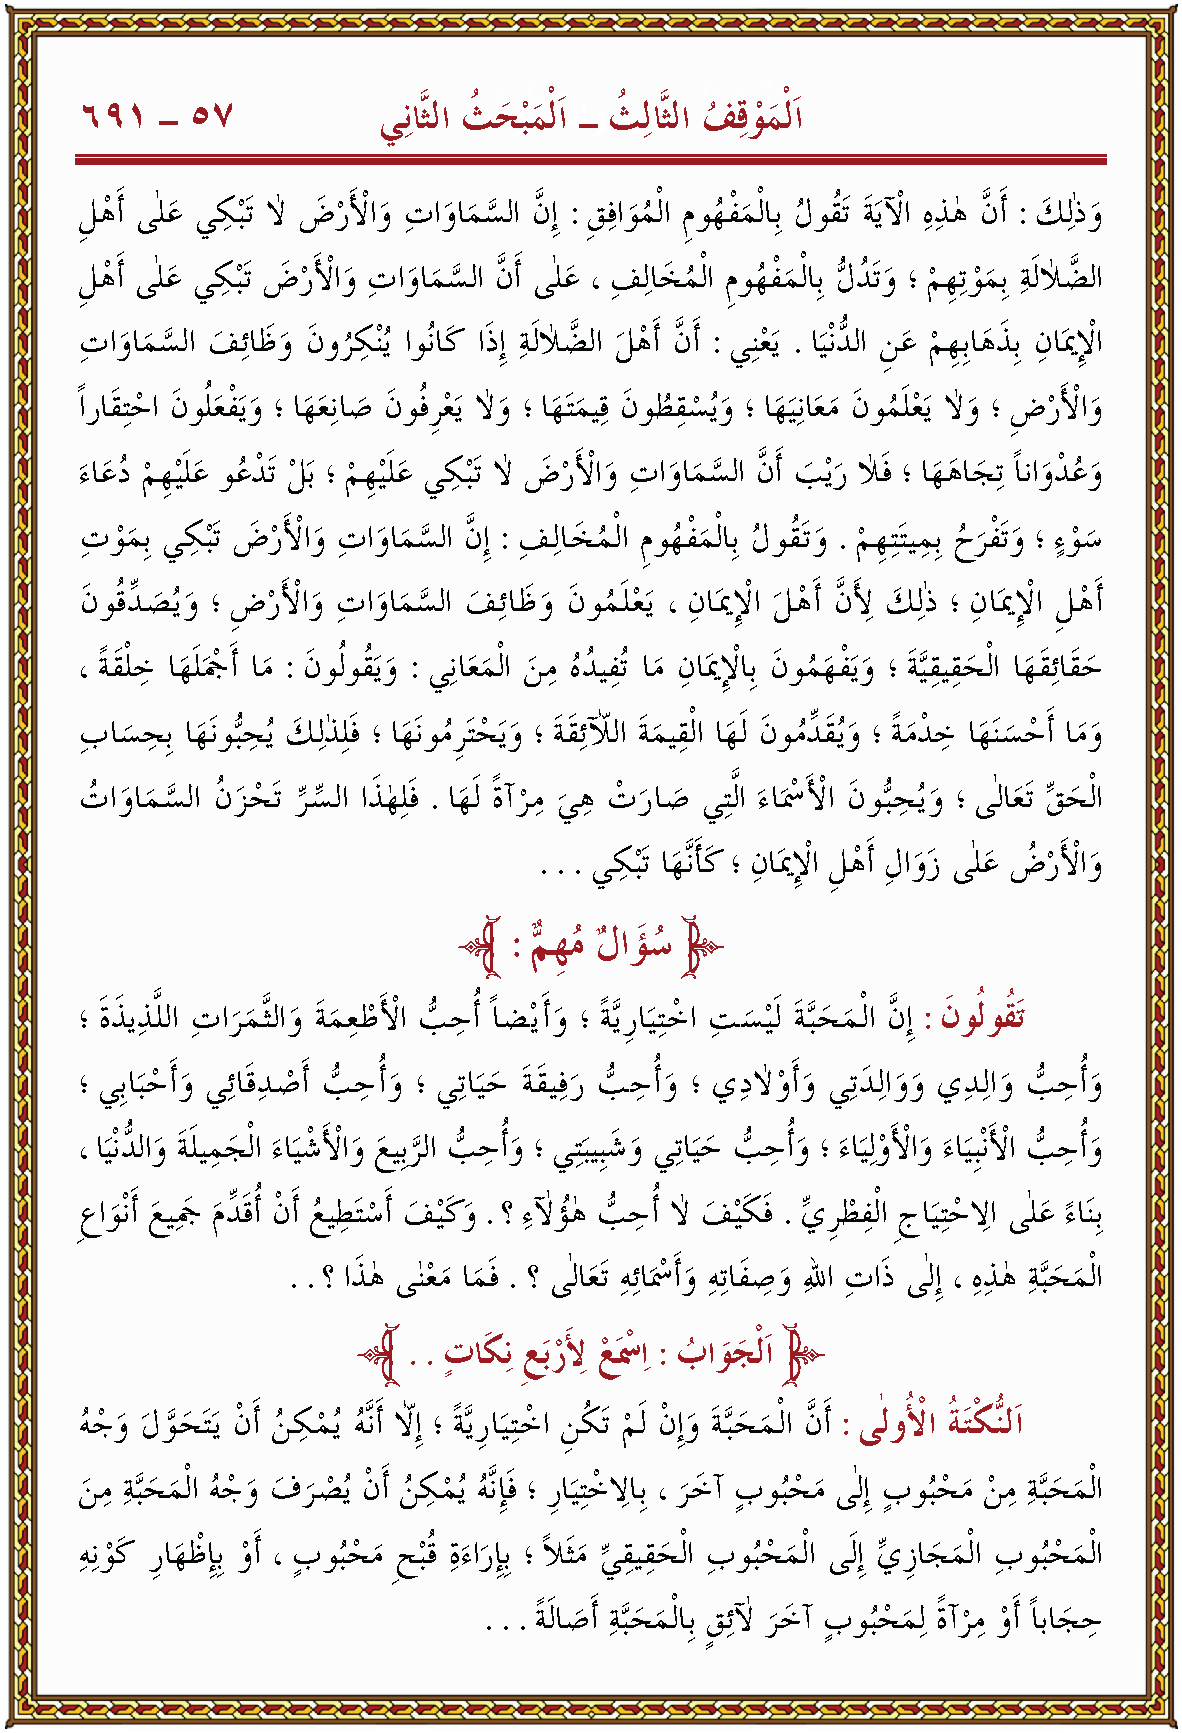 اَلْمَوْقِفُ الثَّالِثُ ـ اَلْمَبْحَثُ الثَّانِي ٥٧ ـ ٦٩١
وَذٰلِكَ : أَنَّ هٰذِهِ الْآيَةَ تَقُولُ بِالْمَفْهُومِ الْمُوَافِقِ : إِنَّ السَّمَاوَاتِ وَالْأَرْضَ لَا تَبْكِي عَلٰى أَهْلِ
الضَّلَالَةِ بِمَوْتِهِمْ ؛ وَتَدُلُّ بِالْمَفْهُومِ الْمُخَالِفِ ، عَلٰى أَنَّ السَّمَاوَاتِ وَالْأَرْضَ تَبْكِي عَلٰى أَهْلِ
الْإِيمَانِ بِذَهَابِهِمْ عَنِ الدُّنْيَا . يَعْنِي : أَنَّ أَهْلَ الضَّلَالَةِ إِذَا كَانُوا يُنْكِرُونَ وَظَائِفَ السَّمَاوَاتِ
وَالْأَرْضِ ؛ وَلَا يَعْلَمُونَ مَعَانِيَهَا ؛ وَيُسْقِطُونَ قِيمَتَهَا ؛ وَلَا يَعْرِفُونَ صَانِعَهَا ؛ وَيَفْعَلُونَ احْتِقَاراً
وَعُدْوَاناً تِجَاهَهَا ؛ فَلَا رَيْبَ أَنَّ السَّمَاوَاتِ وَالْأَرْضَ لَا تَبْكِي عَلَيْهِمْ ؛ بَلْ تَدْعُو عَلَيْهِمْ دُعَاءَ
سَوْءٍ ؛ وَتَفْرَحُ بِمِيتَتِهِمْ . وَتَقُولُ بِالْمَفْهُومِ الْمُخَالِفِ : إِنَّ السَّمَاوَاتِ وَالْأَرْضَ تَبْكِي بِمَوْتِ
أَهْلِ الْإِيمَانِ ؛ ذٰلِكَ لِأَنَّ أَهْلَ الْإِيمَانِ ، يَعْلَمُونَ وَظَائِفَ السَّمَاوَاتِ وَالْأَرْضِ ؛ وَيُصَدِّقُونَ
حَقَائِقَهَا الْحَقِيقِيَّةَ ؛ وَيَفْهَمُونَ بِالْإِيمَانِ مَا تُفِيدُهُ مِنَ الْمَعَانِي : وَيَقُولُونَ : مَا أَجْمَلَهَا خِلْقَةً ،
وَمَا أَحْسَنَهَا خِدْمَةً ؛ وَيُقَدِّمُونَ لَهَا الْقِيمَةَ اللَّآئِقَةَ ؛ وَيَحْتَرِمُونَهَا ؛ فَلِذٰلِكَ يُحِبُّونَهَا بِحِسَابِ
الْحَقِّ تَعَالٰى ؛ وَيُحِبُّونَ الْأَسْمَاءَ الَّتِي صَارَتْ هِيَ مِرْآةً لَهَا . فَلِهٰذَا السِّرِّ تَحْزَنُ السَّمَاوَاتُ
وَالْأَرْضُ عَلٰى زَوَالِ أَهْلِ الْإِيمَانِ ؛ كَأَنَّهَا تَبْكِي . . .
سُؤَالٌ مُهِمٌّ :
تَقُولُونَ : إِنَّ الْمَحَبَّةَ لَيْسَتْ اخْتِيَارِيَّةً ؛ وَأَيْضاً أُحِبُّ الْأَطْعِمَةَ وَالثَّمَرَاتِ اللَّذِيذَةَ ؛
وَأُحِبُّ وَالِدِي وَوَالِدَتِي وَأَوْلَادِي ؛ وَأُحِبُّ رَفِيقَةَ حَيَاتِي ؛ وَأُحِبُّ أَصْدِقَائِي وَأَحْبَابِي ؛
وَأُحِبُّ الْأَنْبِيَاءَ وَالْأَوْلِيَاءَ ؛ وَأُحِبُّ حَيَاتِي وَشَبِيبَتِي ؛ وَأُحِبُّ الرَّبِيعَ وَالْأَشْيَاءَ الْجَمِيلَةَ وَالدُّنْيَا ،
بِنَاءً عَلٰى الِاحْتِيَاجِ الْفِطْرِيِّ . فَكَيْفَ لَا أُحِبُّ هٰؤُلَآءِ ؟ . وَكَيْفَ أَسْتَطِيعُ أَنْ أُقَدِّمَ جَمِيعَ أَنْوَاعِ
الْمَحَبَّةِ هٰذِهِ ، إِلٰى ذَاتِ اللهِ وَصِفَاتِهِ وَأَسْمَائِهِ تَعَالٰى ؟ . فَمَا مَعْنٰى هٰذَا ؟ . .
اَلْجَوَابُ : اِسْمَعْ لِأَرْبَعِ نِكَاتٍ . .
اَلنُّكْتَةُ الْأُولٰى : أَنَّ الْمَحَبَّةَ وَإِنْ لَمْ تَكُنِ اخْتِيَارِيَّةً ؛ إِلَّا أَنَّهُ يُمْكِنُ أَنْ يَتَحَوَّلَ وَجْهُ
الْمَحَبَّةِ مِنْ مَحْبُوبٍ إِلٰى مَحْبُوبٍ آخَرَ ، بِالِاخْتِيَارِ ؛ فَإِنَّهُ يُمْكِنُ أَنْ يُصْرَفَ وَجْهُ الْمَحَبَّةِ مِنَ
الْمَحْبُوبِ الْمَجَازِيِّ إِلَى الْمَحْبُوبِ الْحَقِيقِيِّ مَثَلاً ؛ بِإِرَاءَةِ قُبْحِ مَحْبُوبٍ ، أَوْ بِإِظْهَارِ كَوْنِهِ
حِجَاباً أَوْ مِرْآةً لِمَحْبُوبٍ آخَرَ لَآئِقٍ بِالْمَحَبَّةِ أَصَالَةً . . .